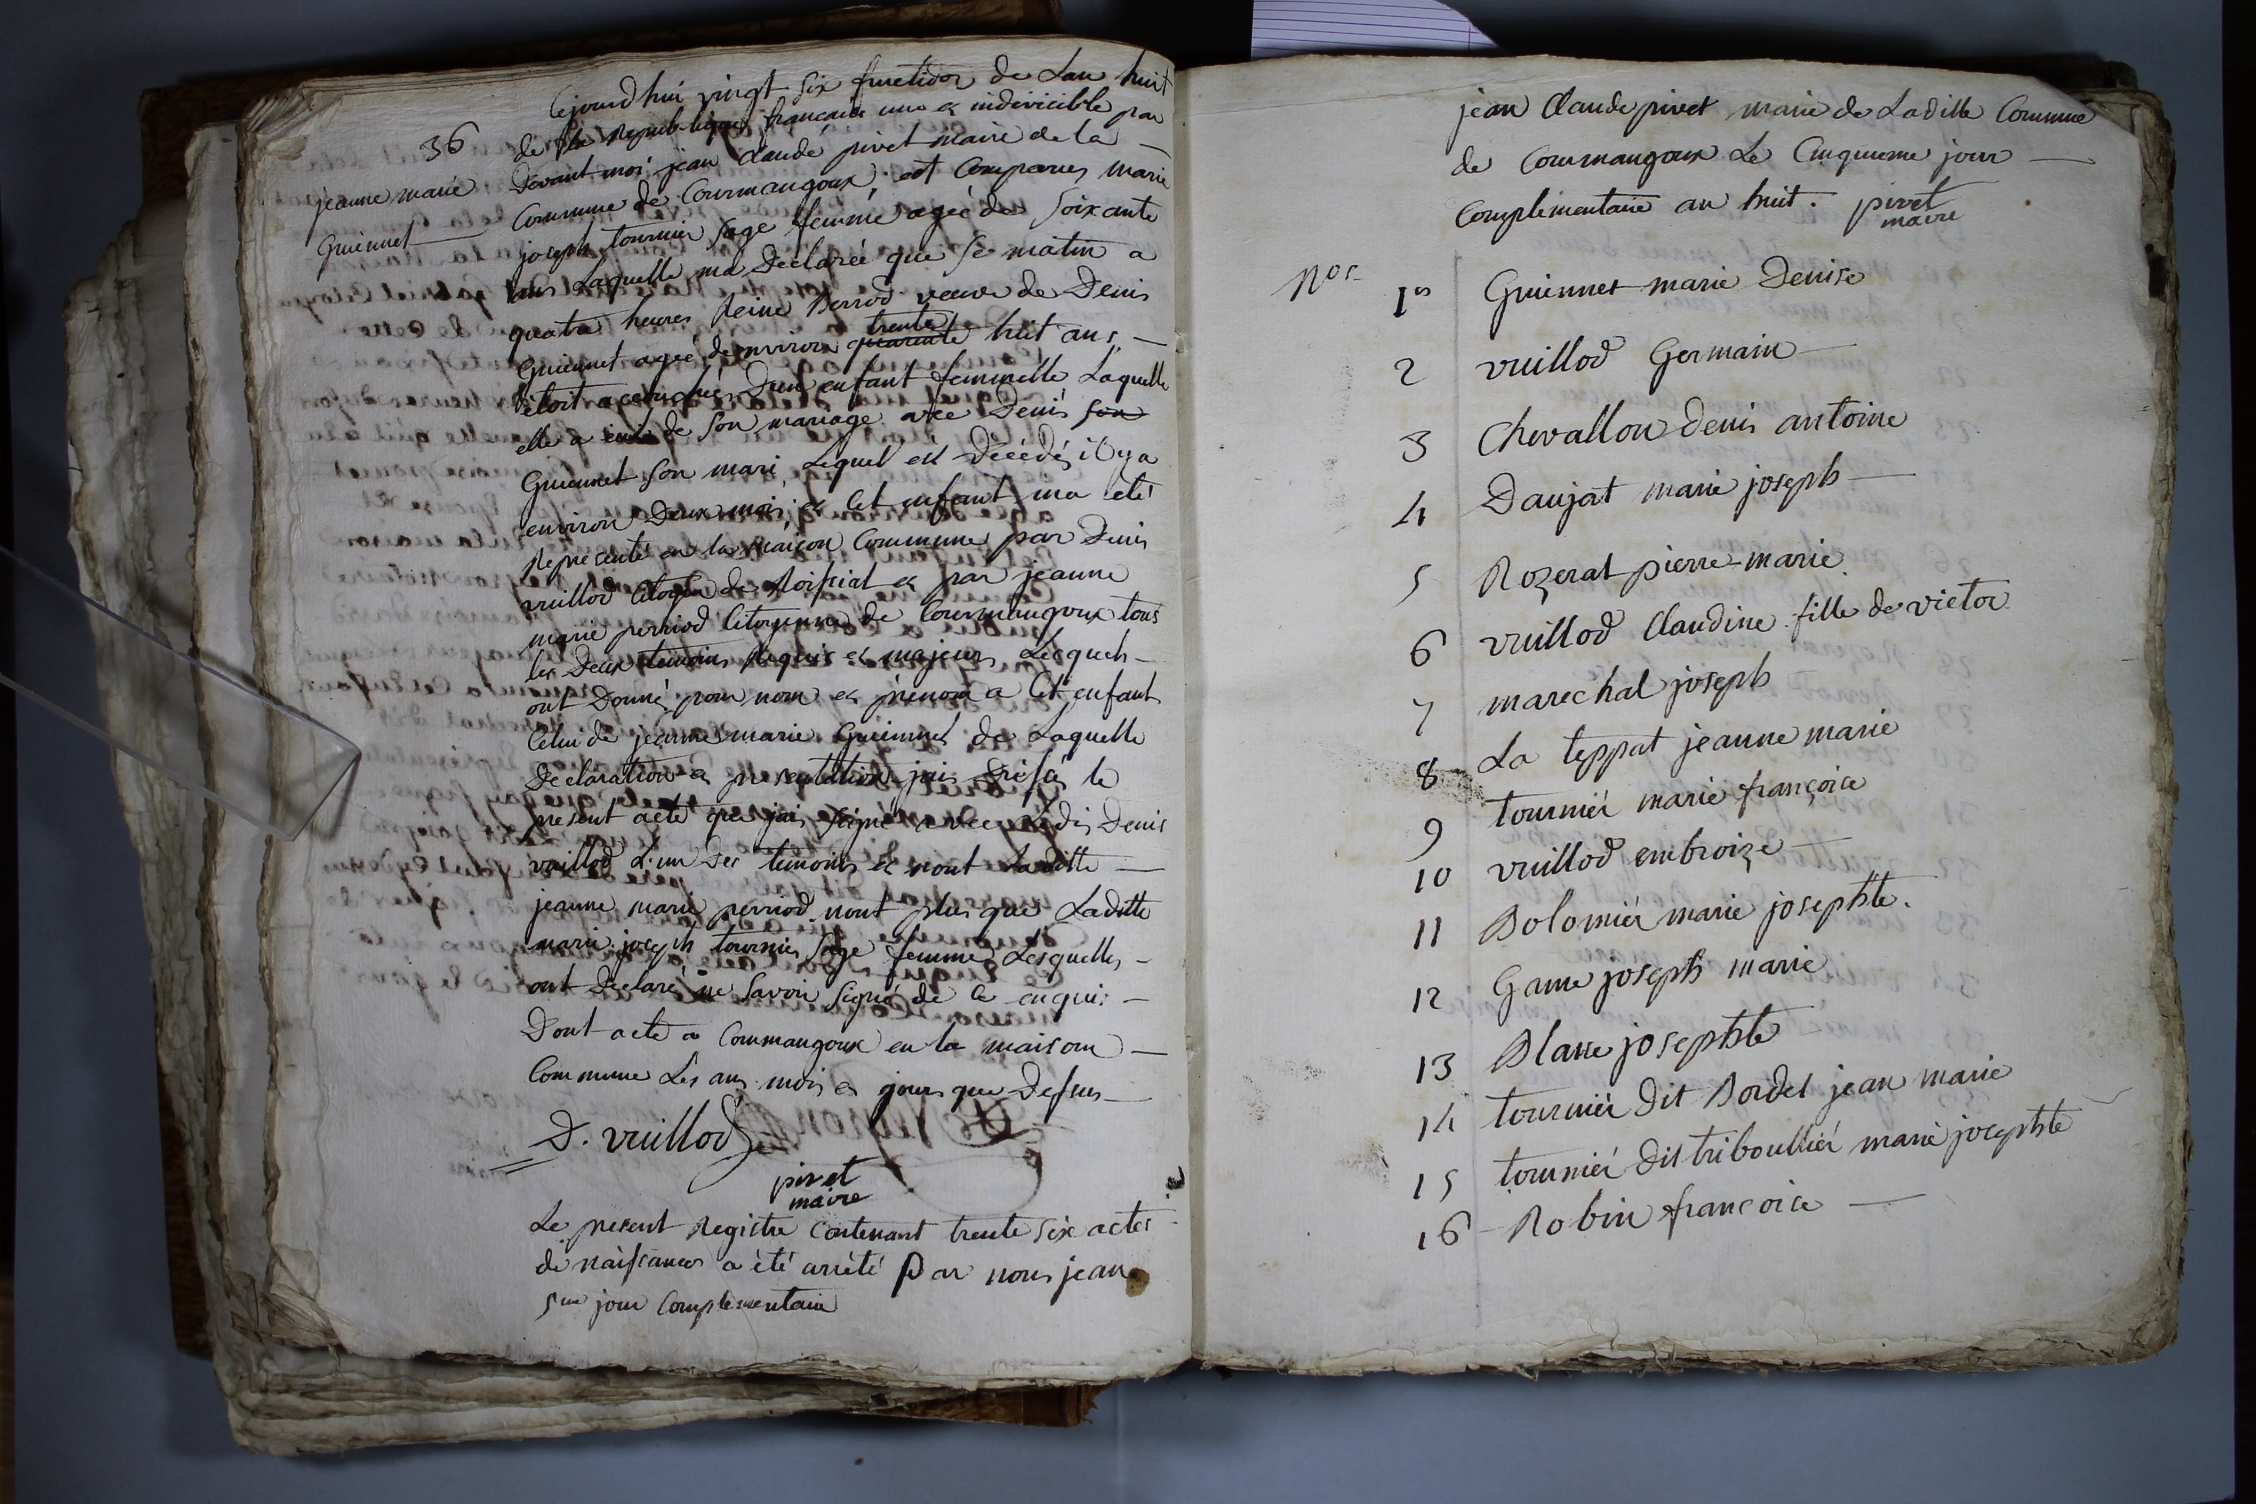 36
jeanne marie
Guiennet
Cejourd'hui vingt six fructidor de Lan huit
de la Republique francaise une et indivicible par
Devant moi jean Claude pivet maire de la
Commune de Courmangoux, est Comparue marie
joseph tournier sage femme agée de soixante
ans Laquelle ma Déclarée que se matin a
quatre heures Reine Perrod veuve de Denis
Guiennet agée denviron quarante trente huit ans,
étoit acouchée d'un enfant femmelle Laquelle
elle a eut de son mariage avec Denis son
Guiennet son mari, Lequel est Décédé il y a
environ Deux mois, et Cet enfant ma été
Représenté en la maison Commune par Denis
vuillod Citoyen de Roissiat et par jeanne
marie perriod Citoyenne de Courmangoux tous
les Deux temoins Requis et majeurs Lesquels
ont Donné pour nom et prénom a Cet enfant
Celui de jeanne marie Guiennet de Laquelle
Declaration et presentation jais Dressés le
present acte que jais signé avec Denis
vuillod L'un des temoins et nont Laditte
jeanne marie perriod nont plus que Laditte
marie joseph tournier sage femme Lesquelles
ont Declaré ne savoir signé de ce enquis
Dont acte a Courmangoux en la maison
Commune Les ans mois et jours que Dessus
D. vuillod
pivet
maire
Le present Registre Contenant trente six actes
de naissances a été arrêté par nous jean
5me jour Complementaire
jean Claude pivet maire de Laditte Commune
de Courmangoux Le Cinquieme jour
Complementaire an huit. pivet
maire
Nos
1er Guiennet marie Denise
2 vuillod Germain
3 Chevallon denis antoine
4 Daujat marie joseph
5 Rozerat pierre-marie
6 vuillod Claudine fille de victor
7 marechal joseph
8 La teppat jeanne marie
9 tournier marie françoise
10 vuillod embroize
11 Bolomier marie josephte.
12 Game joseph marie
13 Blanc josephte
14 tournier dit Bordel jean marie
15 tournier dit triboullier marie josephte
16 Robin francoise